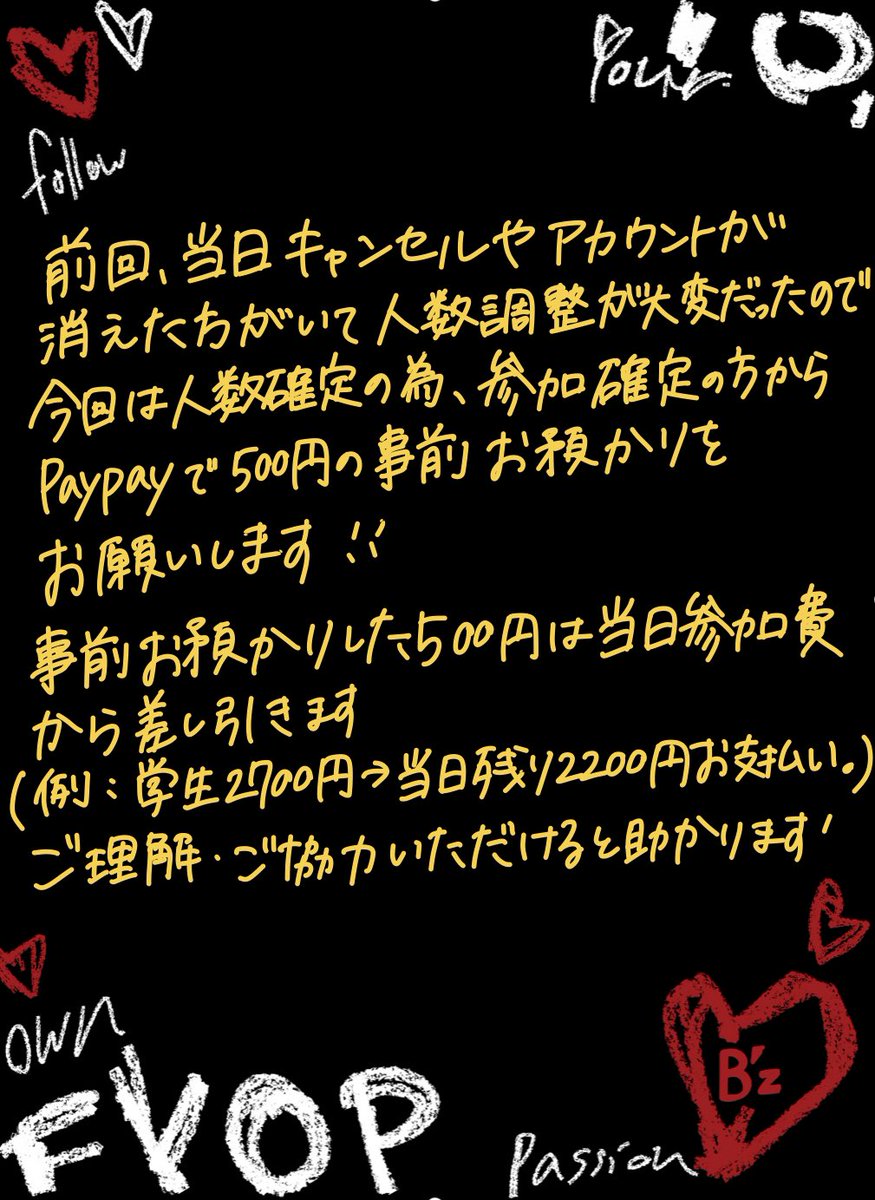 Your
follow
前回、当日キャンセルやアカウントが
消えたちがいて人数調整が大変だったので
今回は人数確定の為、参加確定の方から
Paypayで500円の事前お預かりを
お願いします!!
事前お預かりした500円は当日参加費
から差し引きます
(例:学生2700円→当日残り2200円お支払い。)
ご理解・ご協力いただけると助かります!
own
B'z
FYOP
Passion